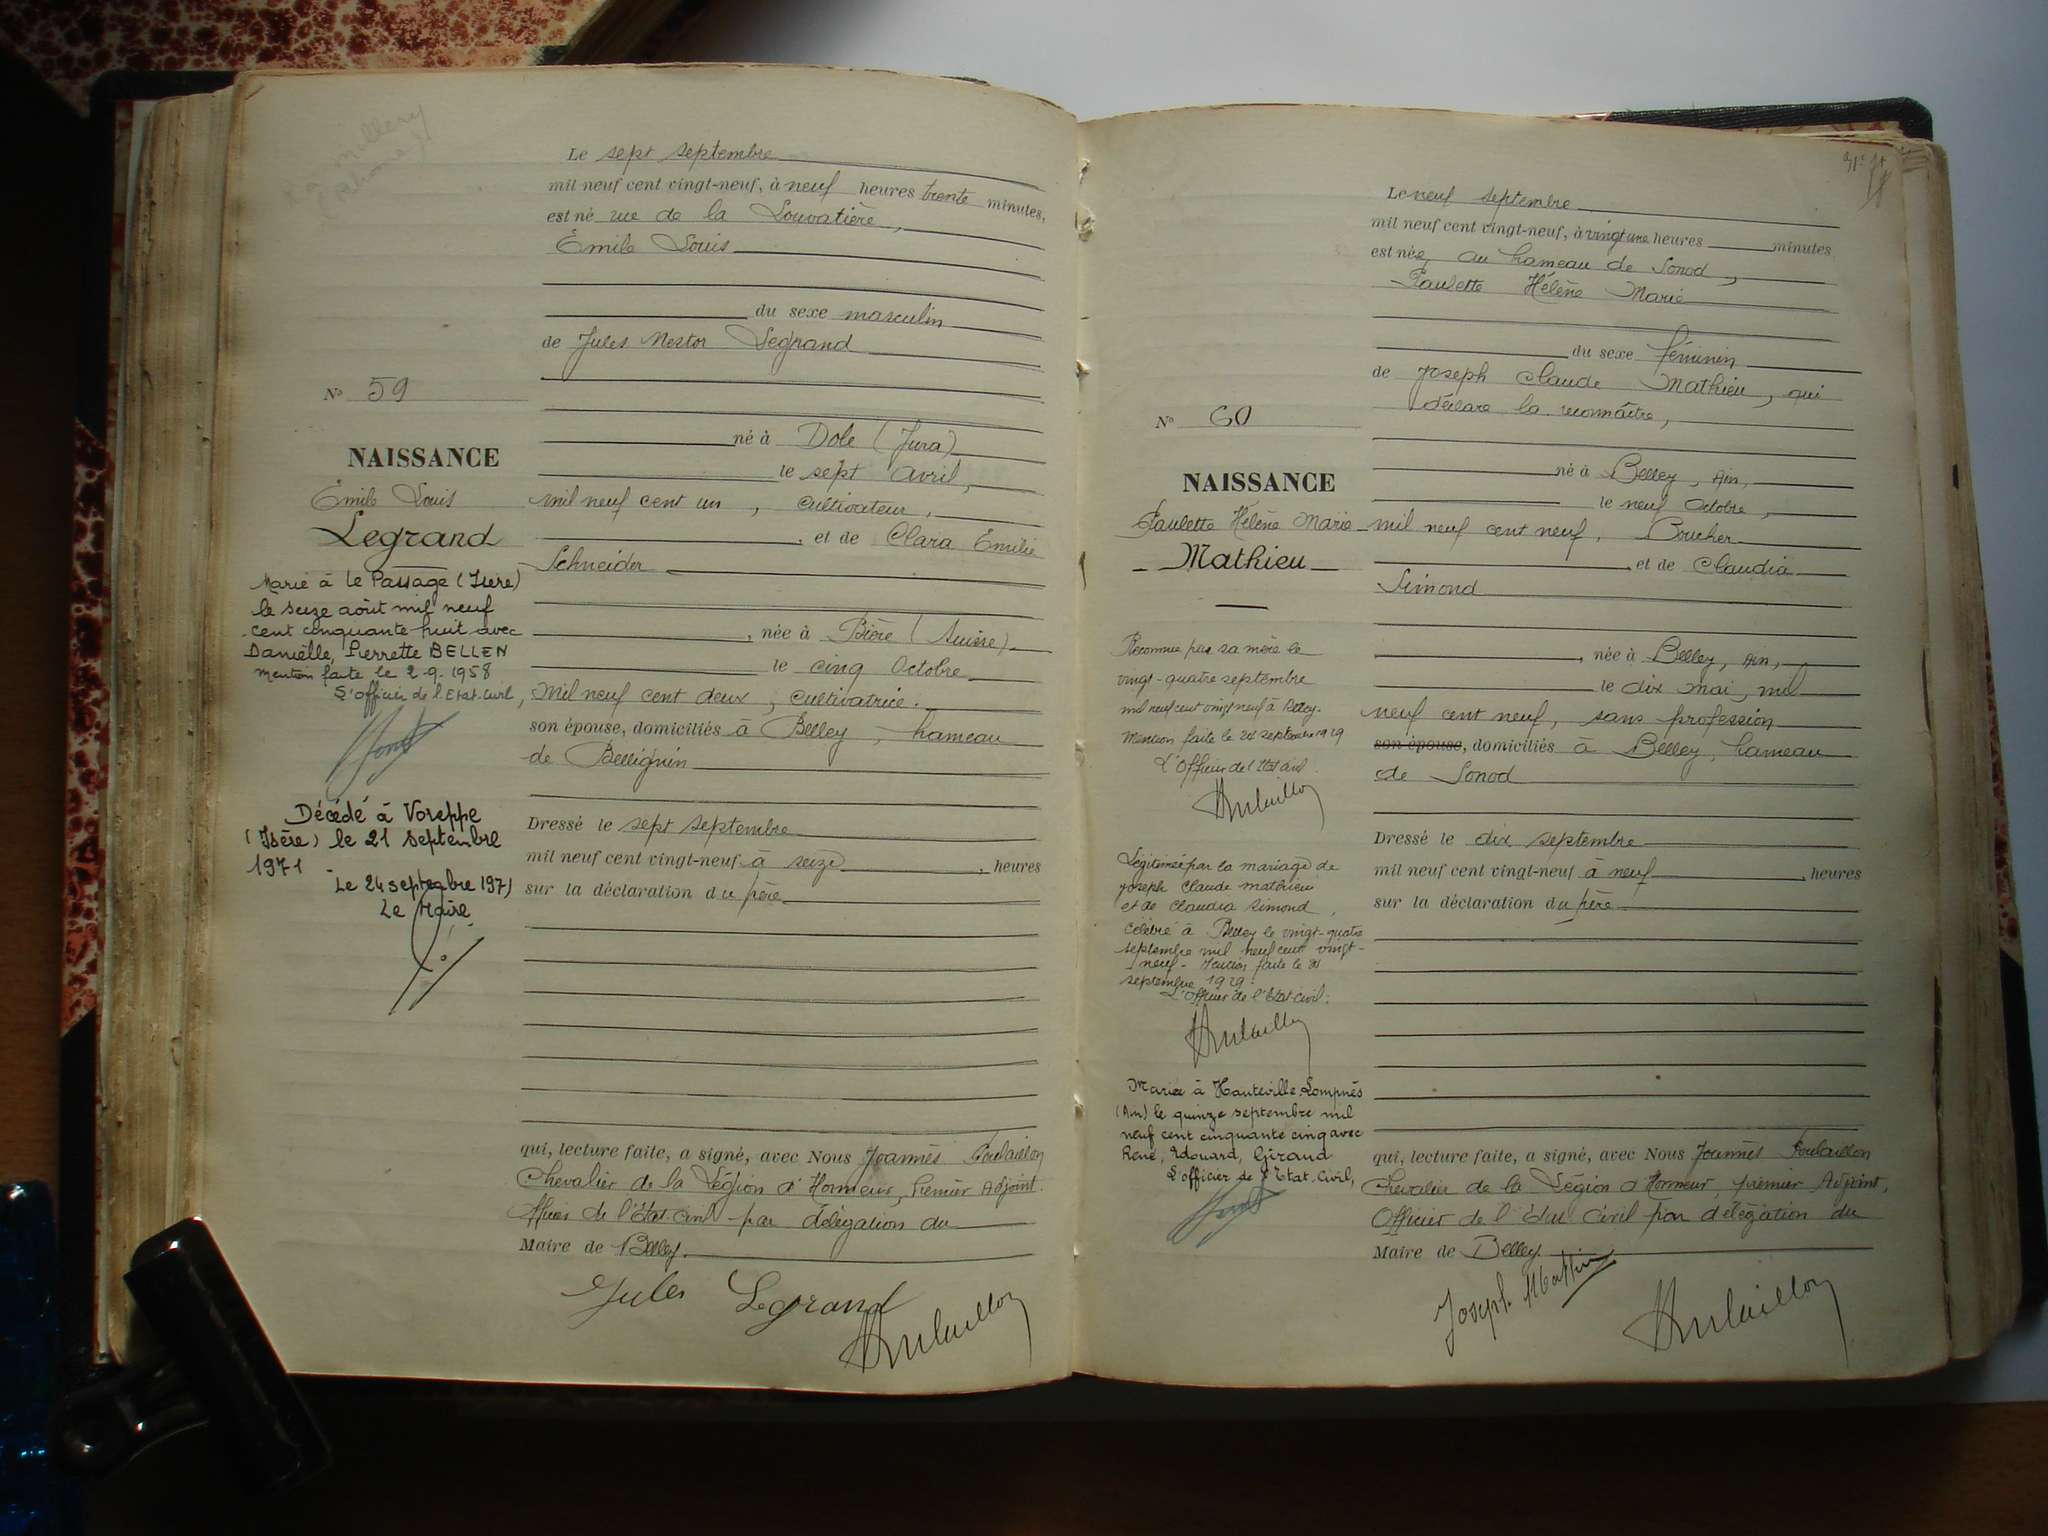 Le sept septembre
mil neuf cent vingt-neuf, à neuf heures trente minutes,
est né rue de la Louvatière,
Émile Louis
du sexe masculin
de Jules Nestor Legrand
né à Dole (Jura)
le sept Avril,
mil neuf cent un, cultivateur,
, et de Clara Emilie
Schneider
, née à Bière (Suisse)
le cinq Octobre
Mil neuf cent deux, cultivatrice.
son épouse, domiciliés à Belley, hameau
de Bellignin
Dressé le sept septembre
mil neuf cent vingt-neuf à seize, heures
sur la déclaration du père
qui, lecture faite, a signé, avec Nous Joannès Poulaillon
Chevalier de la Légion d'Honneur, Premier Adjoint.
Officier de l'État-Civil par délégation du
Maire de Belley.
Jules Legrand
Poulaillon
No 59
NAISSANCE
Émile Louis
Legrand
Marié à Le Passage (Isère)
le seize août mil neuf
cent cinquante huit avec
Danielle, Pierrette BELLEN
mention faite le 2-9-1958
L'officier de l'Etat-Civil,
Décédé à Voreppe
(Isère) le 21 septembre
1971
Le 24 septembre 1971
Le Maire
Le neuf septembre
mil neuf cent vingt-neuf, à vingt une heures minutes
est née, au hameau de Sonod,
Paulette Hélène Marie
du sexe féminin
de Joseph Claude Mathieu, qui
déclare la reconnaître,
né à Belley, Ain,
le neuf Octobre,
mil neuf cent neuf, Boucher
, et de Claudia
Simond
, née à Belley, Ain,
le dix mai, mil
neuf cent neuf, sans profession
son épouse, domiciliés à Belley, hameau
de Sonod
Dressé le dix septembre
mil neuf cent vingt-neuf à neuf, heures
sur la déclaration du père
qui, lecture faite, a signé, avec Nous Joannès Poulaillon
Chevalier de la Légion d'Honneur, premier Adjoint,
Officier de l'état civil par délégation du
Maire de Belley.
Joseph Mathieu
Poulaillon
No 60
NAISSANCE
Paulette Hélène Marie
Mathieu
Reconnue par sa mère le
vingt-quatre septembre
mil neuf cent vingt neuf à Belley.
Mention faite le 24 septembre 1929
L'Officier de l'Etat civil.
Poulaillon
Légitimée par le mariage de
Joseph Claude Mathieu
et de Claudia Simond,
célébré à Belley le vingt-quatre
septembre mil neuf cent vingt-
neuf - Mention faite le
septembre 1929.
L'Officier de l'Etat-Civil:
Poulaillon
Mariée à Hauteville-Lompnès
(Ain) le quinze septembre mil
neuf cent cinquante cinq avec
René, Edouard, Giraud
L'officier de l'Etat-Civil,